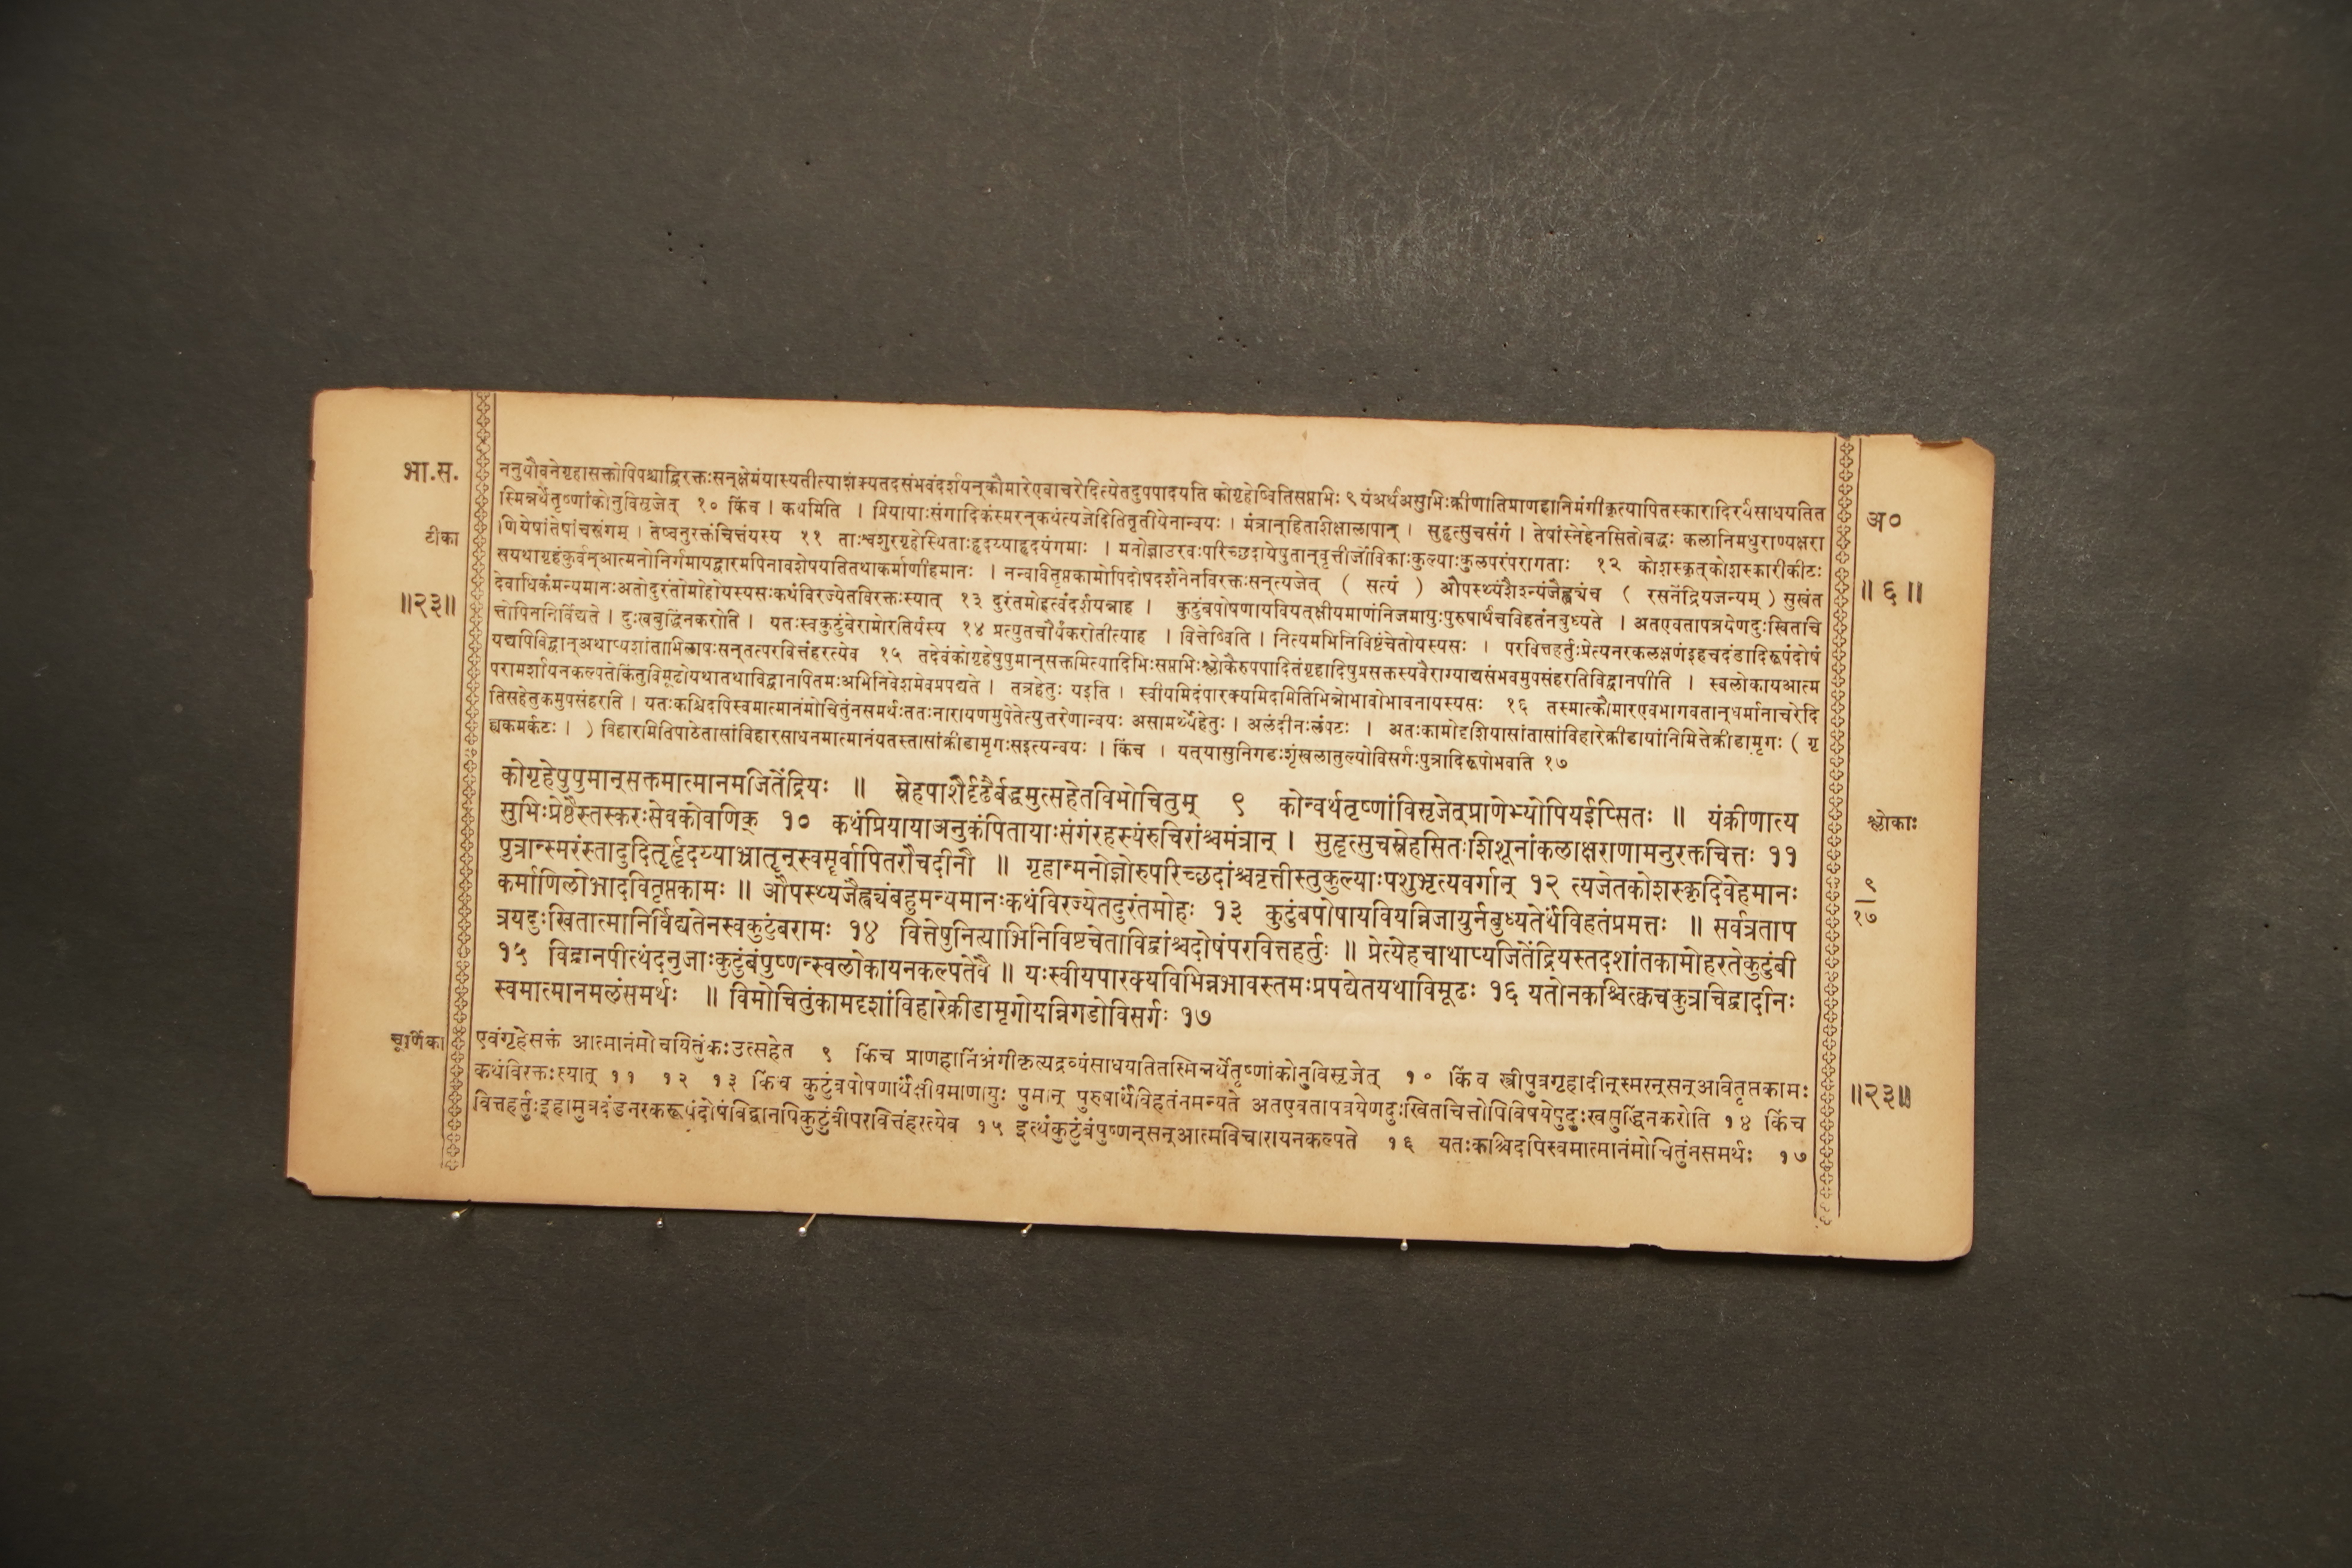 भा.स.
टीका
॥२३॥
ननुयौवनेगृहासक्तोपिपश्चाद्विरक्तःसन्क्षेमंयास्यतीत्याशंक्यतदसंभवंदर्शयन्कौमारेएवाचरेदित्येतदुपपादयति कोगृहेष्वितिसप्तभिः ९ यंअर्थंअसुभिःक्रीणातिप्राणहानिमंगीकृत्यापितस्कारादिरर्थंसाधयतित
स्मिन्नर्थेतृष्णांकोनुविसृजेत् १० किंच । कथमिति । प्रियायाःसंगादिकंस्मरन्कथंत्यजेदितितृतीयेनान्वयः । मंत्रान्हिताशिक्षालापान् । सुहृत्सुचसंगं । तेषांस्नेहेनसितोबद्धः कलानिमधुराण्यक्षरा
णियेषांतेषांचसंगम् । तेष्वनुरक्तंचित्तंयस्य ११ ताःश्वशुरगृहेस्थिताःहृदय्याहृदयंगमाः । मनोज्ञाउरवःपरिच्छदायेषुतान्वृत्तीर्जीविकाःकुल्याःकुलपरंपरागताः १२ कोशस्कृत्कोशस्कारीकीटः
सयथागृहंकुर्वन्आत्मनोनिर्गमायद्वारमपिनावशेषयतितथाकर्माणीहमानः । नन्वावितृप्तकामोपिदोषदर्शनेनविरक्तःसन्त्यजेत् ( सत्यं ) औपस्थ्यंशैश्न्यंजैह्व्यंच ( रसनेंद्रियजन्यम् ) सुखंत
देवाधिकंमन्यमानःअतोदुरंतोमोहोयस्यसःकथंविरज्येतविरक्तःस्यात् १३ दुरंतमोहत्वंदर्शयन्नाह । कुटुंबपोषणायवियत्क्षीयमाणंनिजमायुःपुरुषार्थंचविहतंनबुध्यते । अतएवतापत्रयेणदुःखितचि
त्तोपिननिर्विद्यते । दुःखबुद्धिंनकरोति । यतःस्वकुटुंबेरामोरतिर्यस्य १४ प्रत्युतचौर्यंकरोतीत्याह । वित्तेष्विति । नित्यमभिनिविष्टंचेतोयस्यसः । परवित्तहर्तुःप्रेत्यनरकलक्षणंइहचदंडादिरूपंदोषं
यद्यपिविद्वान्अथाप्यशांताभिलाषःसन्तत्परवित्तंहरत्येव १५ तदेवंकोगृहेषुपुमान्सक्तमित्यादिभिःसप्तभिःश्लोकैरुपपादितंगृहादिषुप्रसक्तस्यवैराग्याद्यसंभवमुपसंहरतिविद्वानपीति । स्वलोकायआत्म
परामर्शायनकल्पतेकिंतुविमूढोयथातथाविद्वानपितमःअभिनिवेशमेवप्रपद्यते । तत्रहेतुः यइति । स्वीयमिदंपारक्यमिदमितिभिन्नोभावोभावनायस्यसः १६ तस्मात्कौमारएवभागवतान्धर्मानाचरेदि
तिसहेतुकमुपसंहरति । यतःकश्चिदपिस्वमात्मानंमोचितुंनसमर्थःततःनारायणमुपेतेत्युत्तरेणान्वयः असामर्थ्येहेतुः । अलंदीनःलंपटः । अतःकामोदृशियासांतासांविहारेक्रीडायांनिमित्तेक्रीडामृगः ( गृ
ह्यकमर्कटः । ) विहारमितिपाठेतासांविहारसाधनमात्मानंयतस्तासांक्रीडामृगःसइत्यन्वयः । किंच । यत्यासुनिगडःशृंखलातुल्योविसर्गःपुत्रादिरूपोभवति १७
अ०
॥ ६ ॥
कोगृहेषुपुमान्सक्तमात्मानमजितेंद्रियः ॥ स्नेहपाशैर्दृढैर्बद्धमुत्सहेतविमोचितुम् ९ कोन्वर्थतृष्णांविसृजेत्प्राणेभ्योपियईप्सितः ॥ यंक्रीणात्य
सुभिःप्रेष्ठैस्तस्करःसेवकोवणिक् १० कथंप्रियायाअनुकंपितायाःसंगंरहस्यंरुचिरांश्चमंत्रान् । सुहृत्सुचस्नेहसितःशिशूनांकलाक्षराणामनुरक्तचित्तः ११
पुत्रान्स्मरंस्तादुहितॄर्हृदय्याभ्रातॄन्स्वसॄर्वापितरौचदीनौ ॥ गृहान्मनोज्ञोरुपरिच्छदांश्चवृत्तीस्तुकुल्याःपशुभृत्यवर्गान् १२ त्यजेतकोशस्कृदिवेहमानः
कर्माणिलोभादवितृप्तकामः ॥ औपस्थ्यजैह्व्यंबहुमन्यमानःकथंविरज्येतदुरंतमोहः १३ कुटुंबपोषायवियन्निजायुर्नबुध्यतेर्थंविहतंप्रमत्तः ॥ सर्वत्रताप
त्रयदुःखितात्मानिर्विद्यतेनस्वकुटुंबरामः १४ वित्तेषुनित्याभिनिविष्टचेताविद्वांश्चदोषंपरवित्तहर्तुः ॥ प्रेत्येहचाथाप्यजितेंद्रियस्तदशांतकामोहरतेकुटुंबी
१५ विद्वानपीत्थंदनुजाःकुटुंबंपुष्णन्स्वलोकायनकल्पतेवै ॥ यःस्वीयपारक्यविभिन्नभावस्तमःप्रपद्येतयथाविमूढः १६ यतोनकश्चित्क्वचकुत्राचिद्वादीनः
स्वमात्मानमलंसमर्थः ॥ विमोचितुंकामदृशांविहारेक्रीडामृगोयन्निगडोविसर्गः १७
श्लोकाः
९
१७
चूर्णिका
एवंगृहेसक्तं आत्मानंमोचयितुंकःउत्सहेत ९ किंच प्राणहानिंअंगीकृत्यद्रव्यंसाधयतितस्मिन्नर्थेतृष्णांकोनुविसृजेत् १० किंच स्त्रीपुत्रगृहादीन्स्मरन्सन्आवितृप्तकामः
कथंविरक्तःस्यात् ११ १२ १३ किंच कुटुंबपोषणार्थंक्षीयमाणायुः पुमान् पुरुषार्थंविहतंनमन्यते अतएवतापत्रयेणदुःखितचित्तोपिविषयेषुदुःखबुद्धिंनकरोति १४ किंच
वित्तहर्तुःइहामुत्रदंडनरकरूपंदोषंविद्वानपिकुटुंबीपरवित्तंहरत्येव १५ इत्थंकुटुंबंपुष्णन्सन्आत्मविचारायनकल्पते १६ यतःकश्चिदपिस्वमात्मानंमोचितुंनसमर्थः १७
॥२३॥